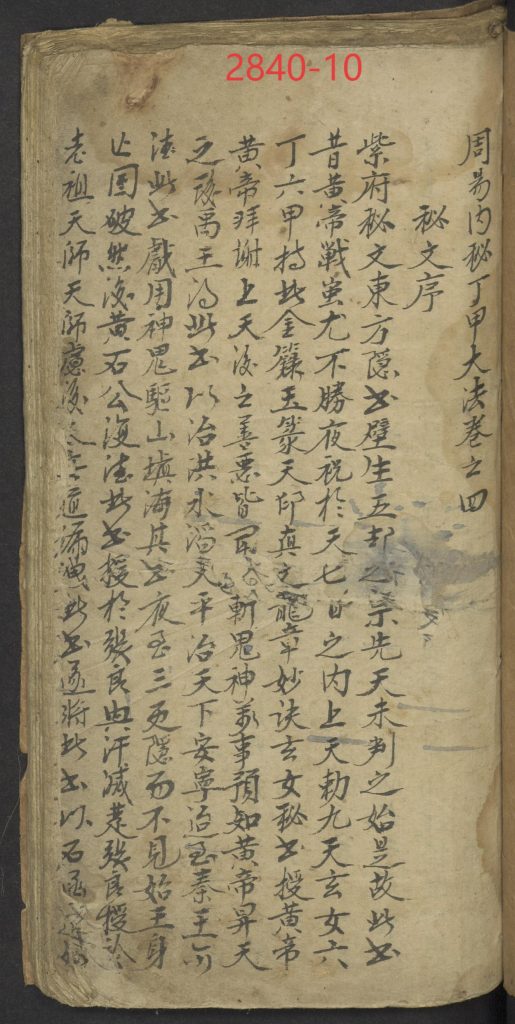 2840-10
周易內秘丁甲大法卷之四
秘文序
紫府秘文東方隱书壁生五刧之
先天未判之始是故此书
昔黄帝戦蚩尤不勝夜祝於天七日之内上天勅九天玄女六
丁六甲持此金籙玉篆天印真文龍章妙诀玄女秘书授黄帝
黄帝拜謝上天後之善惡皆
斬鬼神万事預知黄帝昇天
之後禹王得此书以治洪水滔天平治天下安寧迨至秦王
法此书戯用神鬼驅山填海其书夜至三更隱而不見始王身
亡国破然後黄石公復法此书授於張良
滅楚張良授於
老祖天師天師慮後
道漏洩此书遂將此书以石函